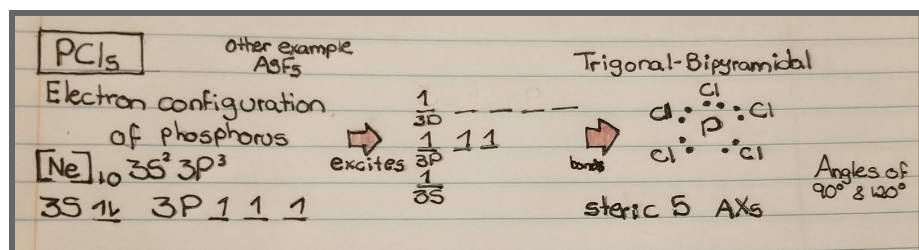 PCl₅
other example
AsF₅
Trigonal-Bipyramidal
Electron configuration
of phosphorus
[Ne]₁₀ 3S² 3P³
3S 1⇂ 3P 1 1 1
excites
1 _ _ _ _
3D
1 1 1
3P
1
3S
bonds
Cl
Cl Cl
P
Cl Cl
steric 5 AX₅
Angles of
90° & 120°